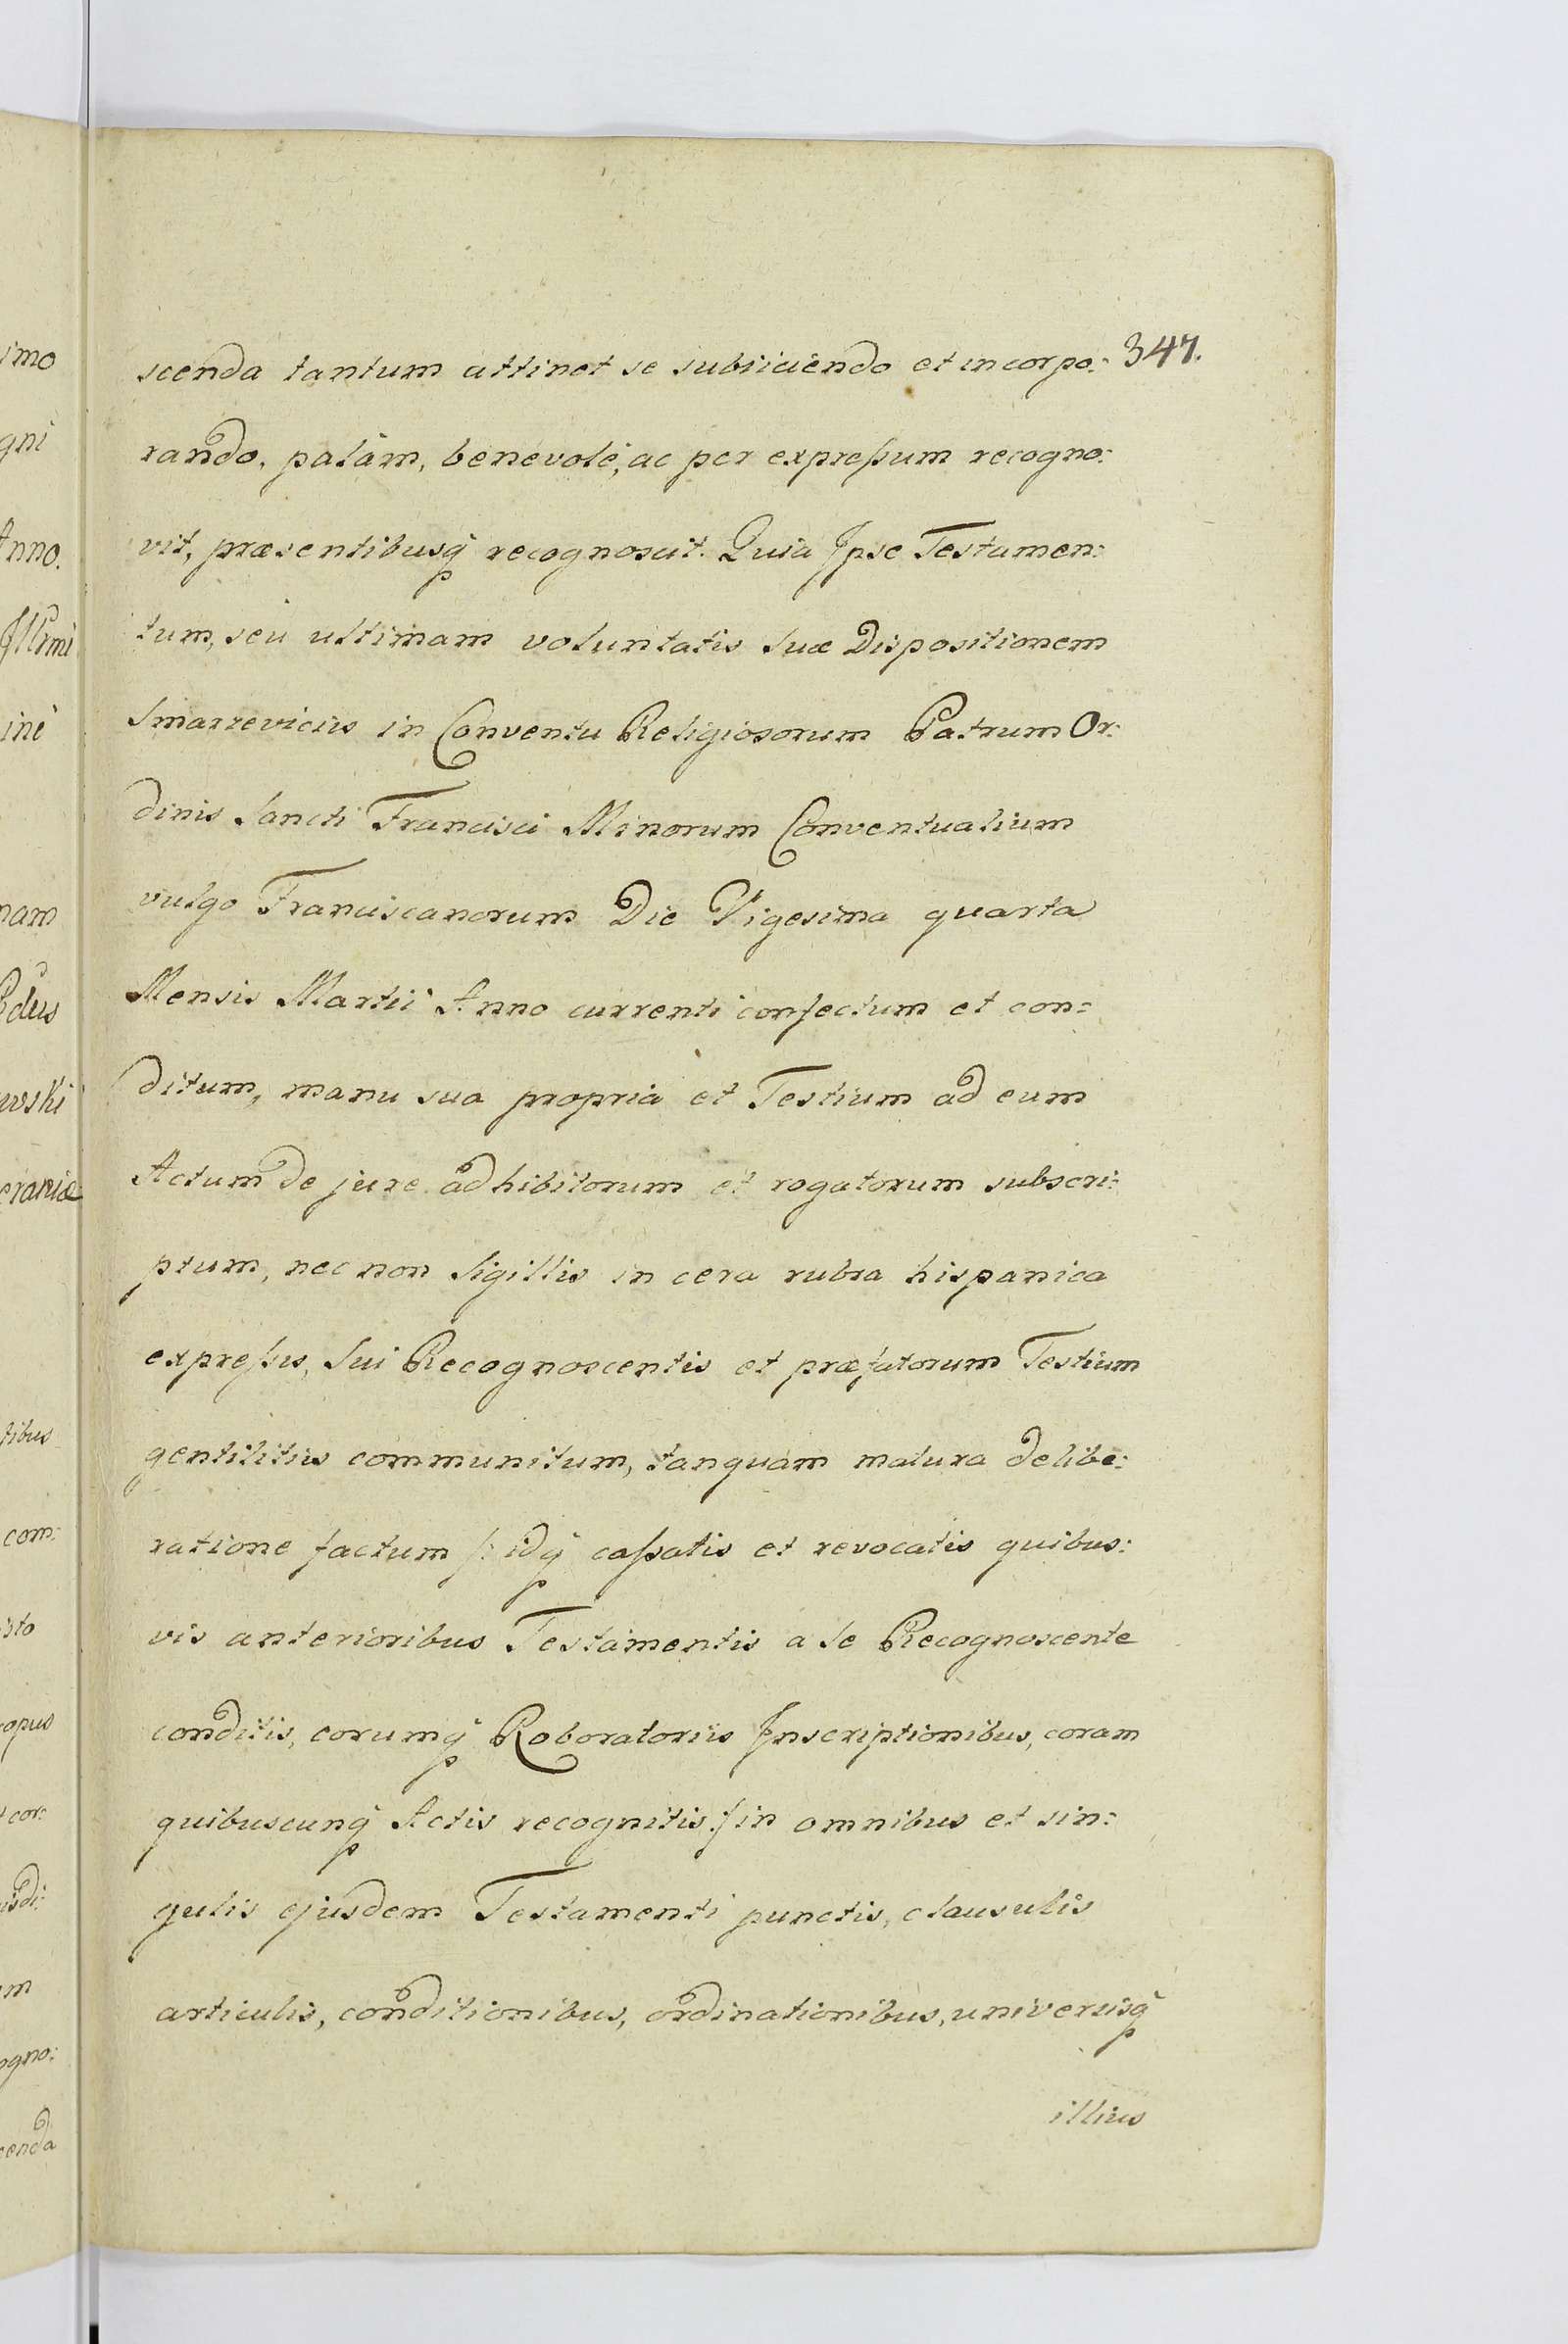 347.
scenda tantum attinet se subiiciendo et incorpo:
rando, palàm, benevolè, ac per expreſsum recogno:
vit, præsentibusq̃ recognoscit. Quia Ipse Testamen:
tum, seù ultimam voluntatis suæ Dispositionem
Smarzeviciis in Conventu Religiosorum Patrum Or:
dinis Sancti Francisci Minorum Conventualium
vulgo Franciscanorum Die Vigesima quarta
Mensis Martii Anno currenti confectum et con=
ditum, manu sua propria et Testium ad eum
Actum de jure adhibitorum et rogatorum subscri:
ptum, nec non Sigillis in cera rubra hispanica
expreſsis, Sui Recognoscentis et præfatorum Testium
gentilitiis communitum, tanquàm matura delibe:
ratione factum /: idq̃ caſsatis et revocatis quibus:
vis anterioribus Testamentis a Se Recognoscente
conditis, eorumq̃ Roboratoriis Inscriptionibus, coram
quibuscunq̃ Actis recognitis :/ in omnibus et sin:
gulis ejusdem Testamenti punctis, clausulis
articulis, conditionibus, ordinationibus, universisq̃
illius